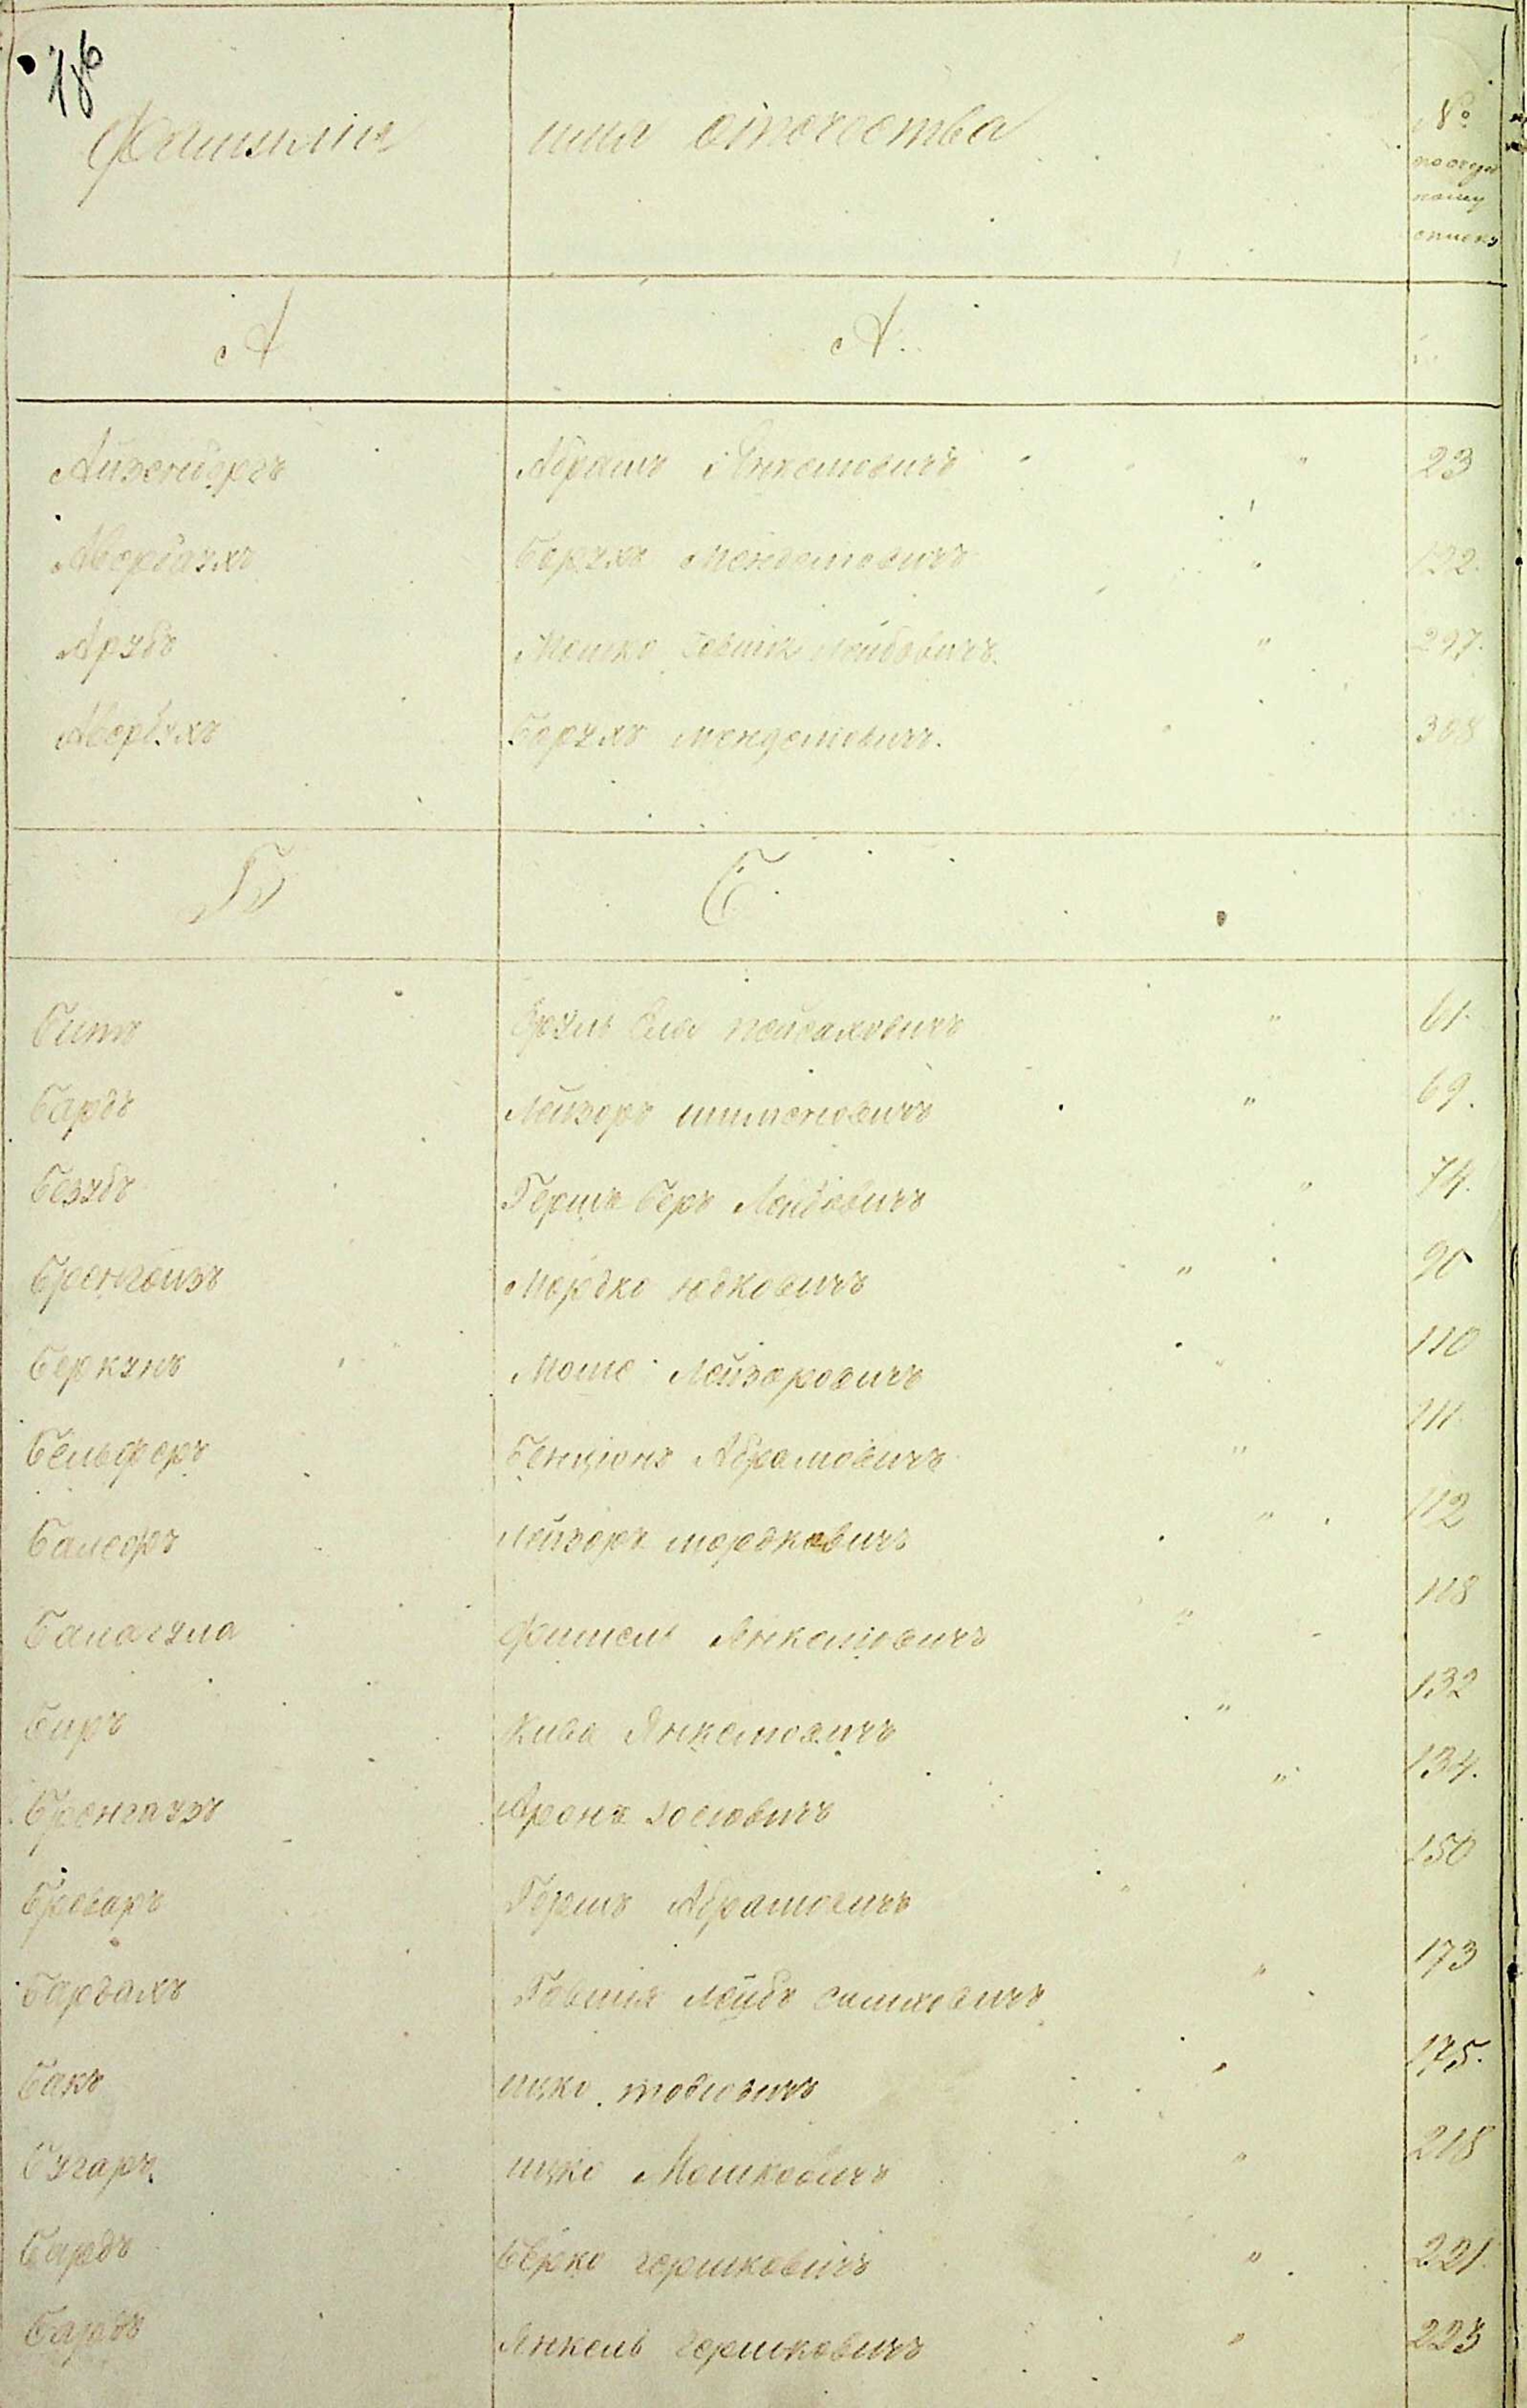 Фамилія имя отчества №
A A.
Айзенбергъ Абрамъ Янкелювичъ " 23
Авербаухъ Борухъ Менделювичъ " 192.
Арубъ Мошко Лейбовичъ " 297.
Авербухъ Борухъ менделювичъ. 308
Б Б.
Битъ Сруль Еля пейсаховичъ " 61.
Бардъ Лейзоръ шимоновичъ " 69.
Безубъ Гершъ Беръ Лейбовичъ " 74.
Бренгойзъ Мордко юдковичъ " 90
Беркунъ Моше Лейзоровичъ " 110
Бельферъ Бенціонъ Абрамовичъ " 111.
Балеоръ Лейзоръ мордковичъ " 112
Балагула фишель Янкелювичъ " 118
Биръ Кива Янкелювичъ " 132
Бренгаузъ Аронъ іослювичъ " 134.
Броваръ Гершъ Абрамовичъ " 150
Бардахъ Говшія Лейбъ симховичъ " 173
Бакъ ицко тодювичъ " 175.
Бугаръ ицко Мошковичъ " 218
Бардъ Берко гершковичъ " 221.
Бардъ Янкель Гершковичъ " 223